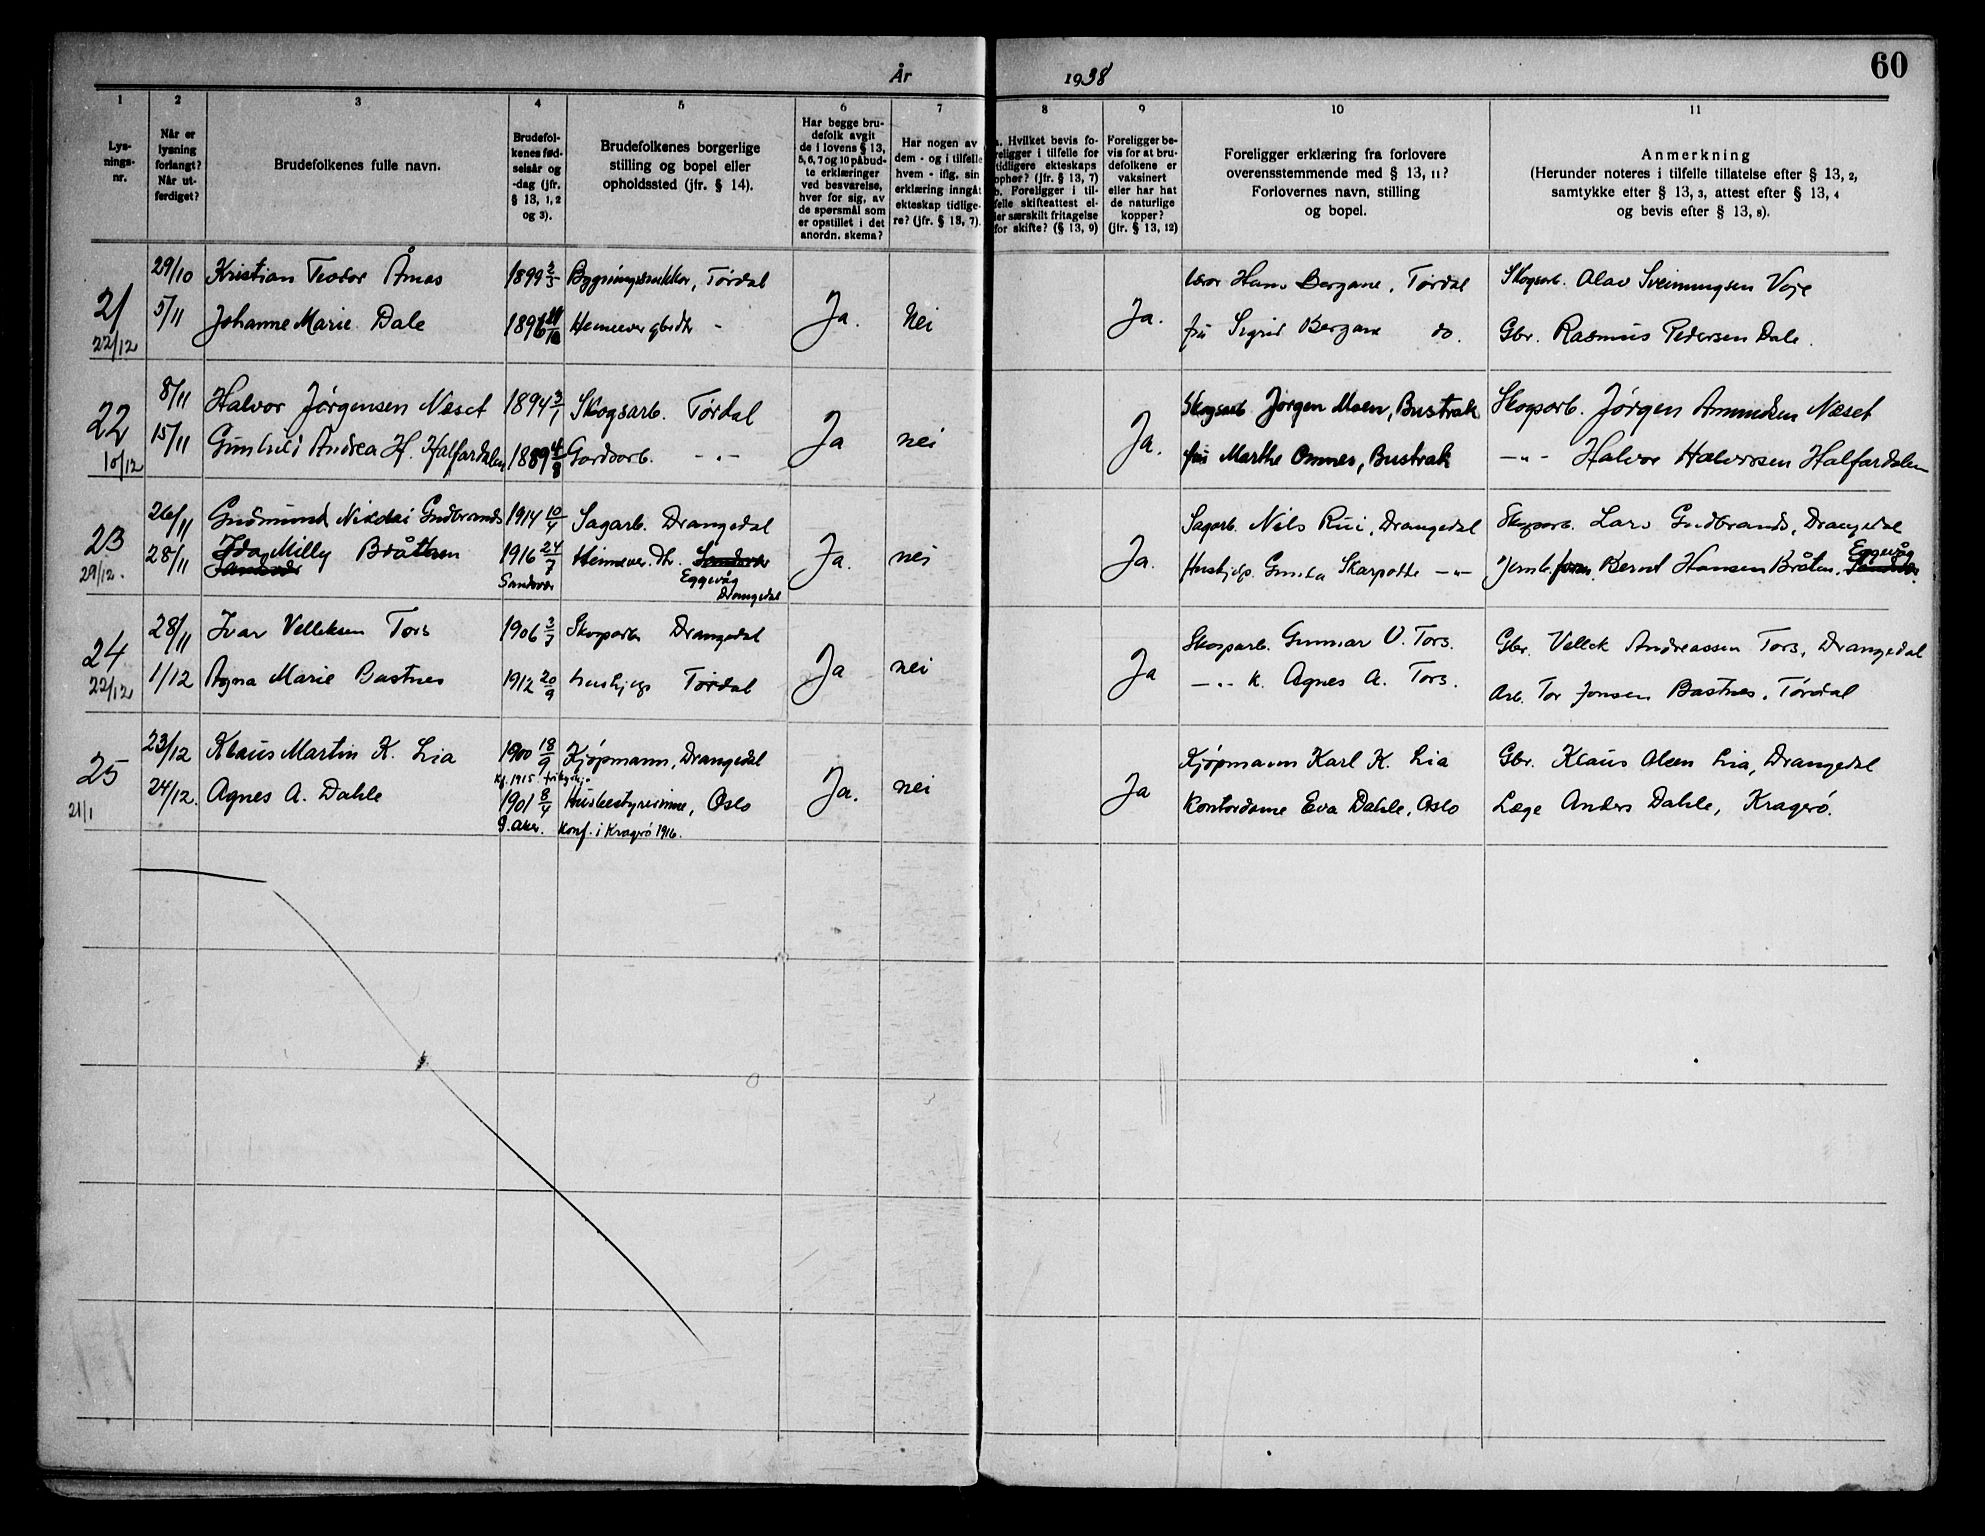 År 1938
60
1 2 3 4 5 6 7 8 9 10 11
Lys-
nings-
nr.
Når er
lysning
forlangt?
Når ut-
ferdiget?
Brudefolkenes fulle navn.
Brudefol-
kenes fød-
selsår og
-dag (jfr.
§ 13, 1, 2
og 3).
Brudefolkenes borgerlige
stilling og bopel eller
opholdssted (jfr. § 14).
Har begge bru-
defolk avgit
de i lovens § 13,
5, 6, 7 og 10 påbud-
te erklæringer
ved besvarelse,
hver for sig, av
de spørsmål som
er opstillet i det
anordn. skema?
Har nogen av
dem - og i tilfelle
hvem - iflg. sin
erklæring inngåt
ekteskap tidlige-
re? (jfr. § 13, 7).
a. Hvilket bevis fo-
religger i tilfelle for
tidligere ekteskaps
ophør? (jfr. § 13, 7)
b. Foreligger i til-
felle skifteattest el-
ler særskilt fritagelse
for skifte? (§ 13, 9)
Foreligger be-
vis for at bru-
defolkene er
vaksinert
eller har hat
de naturlige
kopper?
(jfr. § 13, 12)
Foreligger erklæring fra forlovere
overensstemmende med § 13, 11?
Forlovernes navn, stilling
og bopel.
Anmerkning
(Herunder noteres i tilfelle tillatelse efter § 13, 2,
samtykke efter § 13, 3, attest efter § 13, 4
og bevis efter § 13, 8).
21 29/10 Kristian Teodor Åmås 1899 3/5 Bygningssnekker, Tørdal Ja. Nei Ja. lærer Hans Bergane, Tørdal Skogsarb. Olav Sveinungsen Voje
22/12 5/11 Johanne Marie Dale Hjemmev gbrdtr - fru Sigrid Bergane do. Gbr. Rasmus Pedersen Dale.
22 8/11 Halvor Jørgensen Næset 1894 3/1 Skogsarb. Tørdal Ja nei Ja. Skogsarb Jørgen Moen, Bustrak Skogsarb. Jørgen Amundsen Næset
10/12 15/11 Gunhild Andrea H. Halfardalen 1889 4/8 Gardsarb. -"- fru Marthe Omnes, Bustrak -"- Halvor Halvorsen Halfardalen
23 26/11 Gudmund Nikolai Gudbrands 1914 10/4 Sagarb. Drangedal Ja. nei Ja. Sagarb. Nils Rui, Drangedal Skogsarb. Lars Gudbrands, Drangedal
29/12. 28/11 Ida Milly Bråthen 1916 24/7 Heimever. Dtr. Sandsvær Hushjelp. Gunda Skarpotte -"- Jernb. Bernt Hansen Bråten, Eggevåg
Sandsvær Sandsvær Eggevåg
Drangedal
24 28/11 Ivar Velleksen Tors 1906 3/7 Skogsarb Drangedal Ja nei Ja Skogsarb. Gunnar V. Tors. Gbr. Vellek Andreassen Tors, Drangedal
22/12 1/12 Agna Marie Bastnes 1912 20/9 hushjelp Tørdal -"- k. Agnes A. Tors. Arb. Tor Jonsen Bastnes, Tørdal
25 23/12 Klaus Martin K. Lia 1900 18/9 Kjøpmann, Drangedal Ja. nei Ja Kjøpmann Karl K. Lia Gbr. Klaus Olsen Lia, Drangedal
Kf. 1915
21/1 24/12. Agnes A. Dahle 1901 8/4 Husbestyrerinne, Oslo Kontordame Eva Dahle, Oslo Læge Anders Dahle, Kragerø.
konf. i Kragerø 1916.